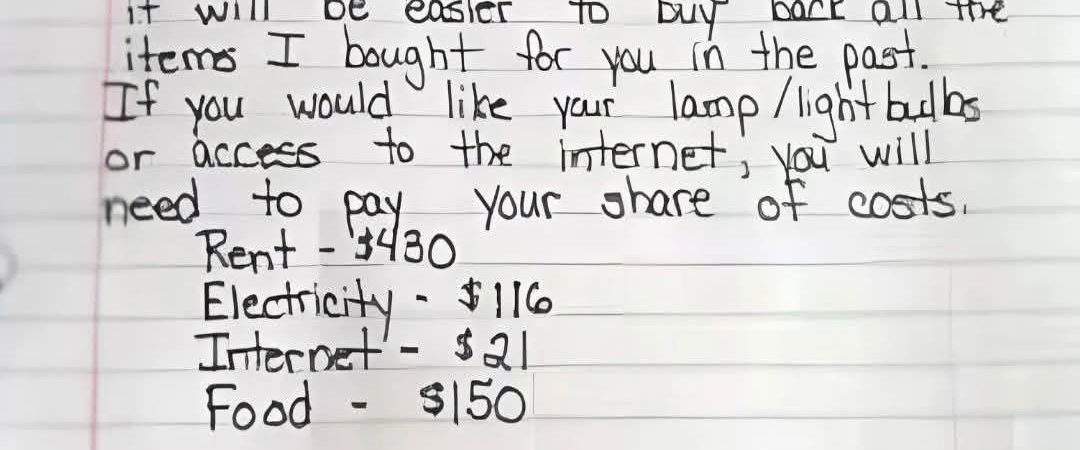 it will be easier to buy back all the
items I bought for you in the past.
If you would like your lamp/lightbulbs
or access to the internet, you will
need to pay your share of costs.
Rent - $430
Electricity - $116
Internet - $21
Food - $150